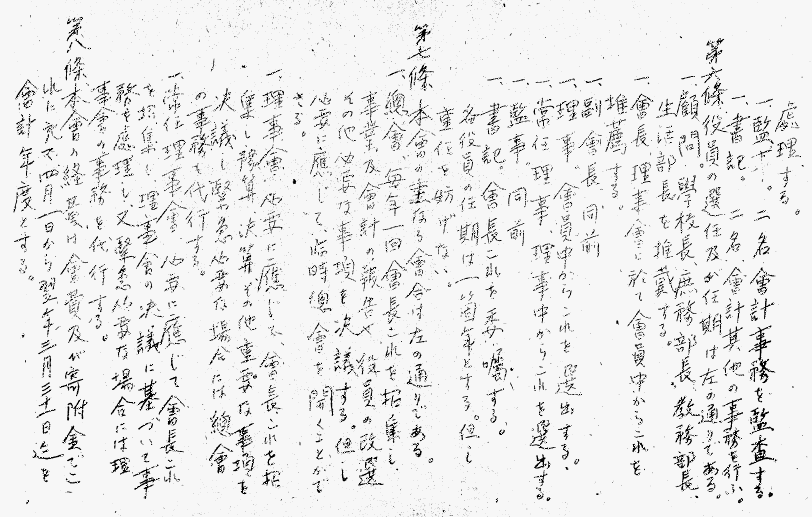 處理する。
一、監事 二名會計事務を監査する。
一、書記 二名會計其他の事務を行ふ。
第六條 役員の選任及び任期は左の通りである。
一、顧問 學校長、庶務部長、教務部長、
生活部長を推戴する。
一、會長 理事會に於て會員中からこれを
推薦する。
一、副會長 同前
一、理事 會員中からこれを選出する。
一、常任理事 理事中からこれを選出する。
一、監事 同前
一、書記 會長これを委囑する。
各役員の任期は一箇年とする。但し
重任を妨げない。
第七條 本會の重なる會合は左の通りである。
一、總會 毎年一回會長これを招集し
事業及會計の報告や役員の改選
その他必要な事項を決議する。但し
必要に應じて、臨時總會を開くことができ
きる。
一、理事會 必要に應じて、會長これを招
集し豫算、決算その他重要な事項を
決議し緊急必要な場合には總會
の事務を代行する。
一、常任理事會 必要に應じて會長これ
を招集し、理事會の決議に基づいて事
務を處理し又緊急必要な場合には理
事會の事務を代行する。
第八條 本會の經費は會費及び寄附金でこ
れに充て四月一日から翌年三月三十一日迄を
會計年度とする。